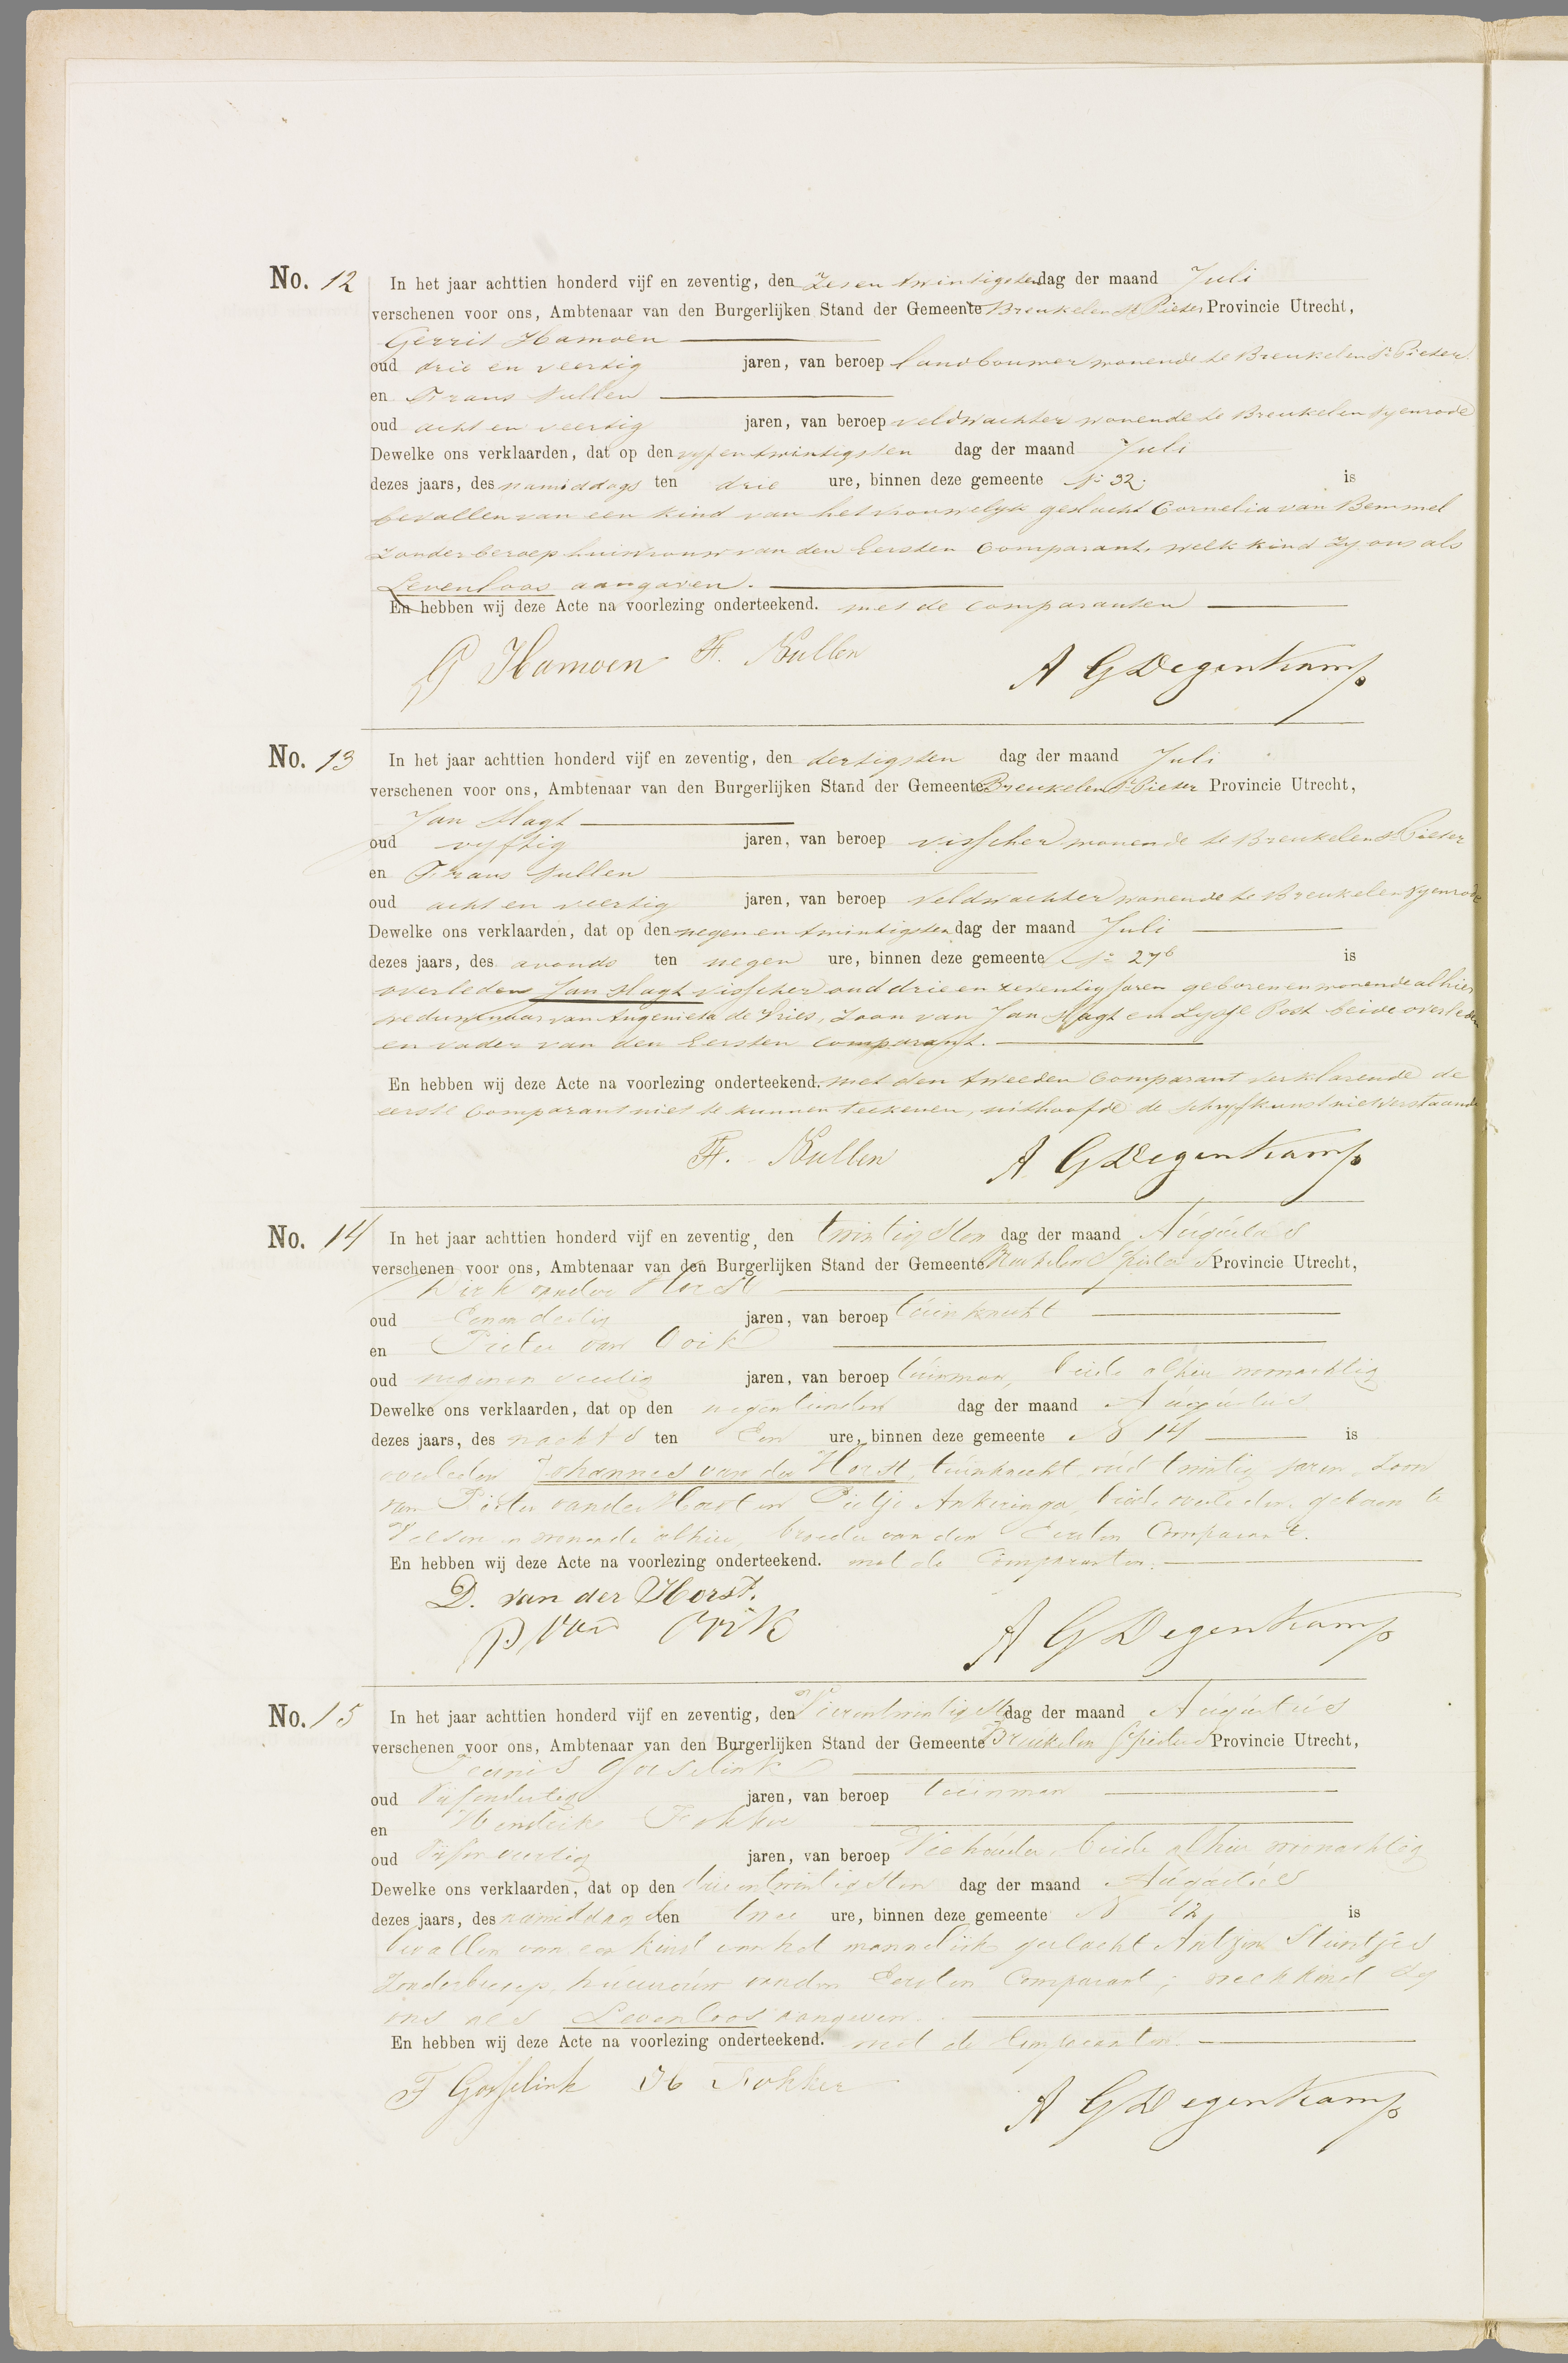 No. 12 In het jaar achttien honderd vijf en zeventig, den Zesen twintigsten dag der maand Juli
verschenen voor ons, Ambtenaar van den Burgerlijken Stand der Gemeente Breukelen St Pieter Provincie Utrecht,
Gerrit Hamoen
oud drie en veertig jaren, van beroep landbouwer wonende te Breukelen St Pieter
en Frans Kullen
oud acht en veertig jaren, van beroep veldwachter wonende te Breukelen Nyenrode
Dewelke ons verklaarden, dat op den vyf en twintigsten dag der maand Juli
dezes jaars, des namiddags ten drie ure, binnen deze gemeente No 32. is
bevallen van een kind van het vrouwelyk geslacht Cornelia van Bemmel
zonder beroep huisvrouw van den Eersten Comparant, welk kind zy ons als
Levenloos aangaven.
En hebben wij deze Acte na voorlezing onderteekend. met de comparanten
G Hamoen F. Kullen A G Degenkamp
No. 13 In het jaar achttien honderd vijf en zeventig, den dertigsten dag der maand Juli
verschenen voor ons, Ambtenaar van den Burgerlijken Stand der Gemeente Breukelen St Pieter Provincie Utrecht,
Jan Slagt
oud vyftig jaren, van beroep visscher wonende te Breukelen St Pieter
en Frans Kullen
oud acht en veertig jaren, van beroep Veldwachter wonende te Breukelen Nyenrode
Dewelke ons verklaarden, dat op den negen en twintigsten dag der maand Juli
dezes jaars, des avonds ten negen ure, binnen deze gemeente No 27b is
overleden Jan Slagt visscher oud drie en zeventig jaren geboren en wonende alhier
weduwnaar van Angenieta de Vries, Zoon van Jan Slagt en Lysje Post beide overleden
en vader van den Eersten comparant.
En hebben wij deze Acte na voorlezing onderteekend. met den tweeden Comparant verklarende de
eerste Comparant niet te kunnen teekenen, uithoofde de schryfkunst niet verstaande
F. Kullen A G Degenkamp
No. 14 In het jaar achttien honderd vijf en zeventig, den twintigsten dag der maand Augustus
verschenen voor ons, Ambtenaar van den Burgerlijken Stand der Gemeente Breukelen St Pieters Provincie Utrecht,
Dirk van der Horst
oud Eenendertig jaren, van beroep tuinknecht
en Pieter van Ooik
oud negenen veertig jaren, van beroep tuinman, beide alhier woonachtig
Dewelke ons verklaarden, dat op den negentienden dag der maand Augustus
dezes jaars, des nachts ten Een ure, binnen deze gemeente N 14 is
overleden Johannes van der Horst, tuinknecht oud twintig jaren Zoon
van Pieter van der Horst en Pietje Ankeringa, beide overleden, geboren te
Velsen en wonende alhier, broeder van den Eersten Comparant.
En hebben wij deze Acte na voorlezing onderteekend. met de Comparanten.
D. van der Horst.
P van Ooik A G Degenkamp
No. 15 In het jaar achttien honderd vijf en zeventig, den Vierentwintigste dag der maand Augustus
verschenen voor ons, Ambtenaar van den Burgerlijken Stand der Gemeente Breukelen St Pieters Provincie Utrecht,
Teunis Gosselink
oud Vijfendertig jaren, van beroep tuinman
en Hendrik Fokker
oud Vijfenveertig jaren, van beroep Veehouder, beide alhier woonachtig
Dewelke ons verklaarden, dat op den drieentwintigsten dag der maand Augustus
dezes jaars, des namiddags ten twee ure, binnen deze gemeente N 12, is
bevallen van een kind van het mannelijk geslacht Antzjen Stuntjes
Zonder beroep, huisvrouw van den Eersten Comparant; welk kind zij
ons als Levenloos aangeven.
En hebben wij deze Acte na voorlezing onderteekend. met de Comparanten.
T Gosselink H Fokker A G Degenkamp